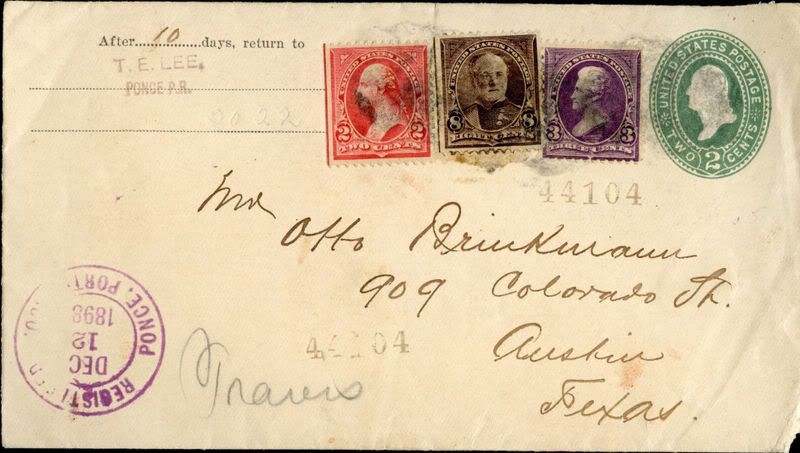 After 10 days, return to
T. E. LEE,
PONCE P.R.
2022
UNITED STATES POSTAGE
2 2
TWO CENTS
UNITED STATES POSTAGE
8 8
EIGHT CENTS
UNITED STATES POSTAGE
3 3
THREE CENTS
UNITED STATES POSTAGE
TWO 2 CENTS
44104
Mr
Otto Brinkmann
909 Colorado St.
Austin
Texas.
44104
Travis
REGISTERED
DEC
12
1898
PONCE, PORTO RICO.